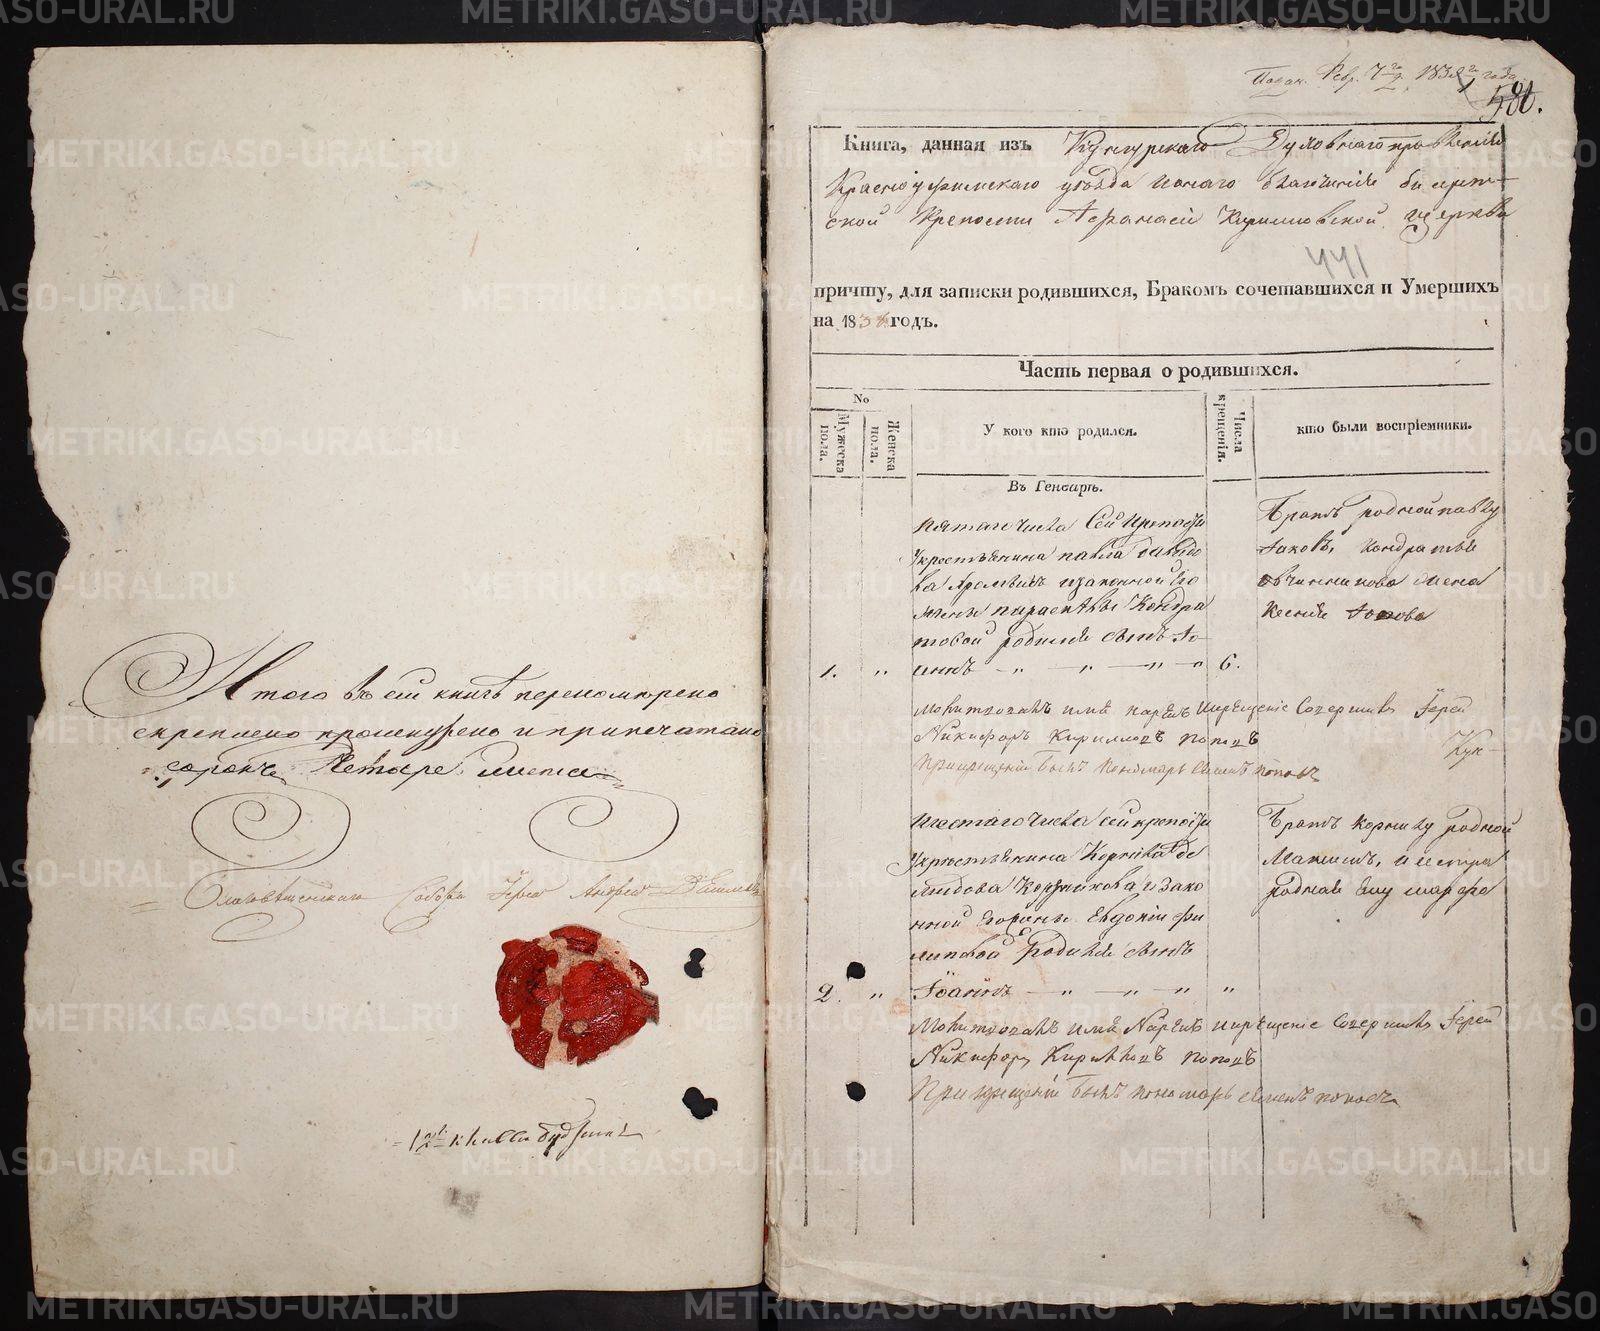 Итого въ сей книгѣ перенумерено
скреплено прошнурено и припечатано
сорокъ Четыре листа
Благовѣщенскаго Собора Іерей Андрей
Подан. Февр. 7го 183 года
Книга, данная изъ Кунгурскаго Духовнаго правленія
Красноуфимскаго уѣзда
ской Крепости Афанасіе Кирилловской церкви
441
причту, для записки родившихся, Бракомъ сочетавшихся и Умершихъ
на 183 годъ.
Часть первая о родившихся.
No
Мужеска пола.
Женска пола.
У кого кто родился.
Числа крещенія.
кто были воспріемники.
Въ Генварѣ.
Пятаго числа Сей крепости
крестьянина павла давидо
ва изаконной Его
жены параскевы Кондра
товой родился сынъ Іо-
1. " аннъ - " - " - " - " 6.
Братъ родной павлу
Іаковъ, Кондратья
овчинникова жена
Ксенія
Молитвовалъ имя нарекъ икрещеніе Совершилъ Іерей
Никифоръ Кирилловъ поповъ
Прикрещеніи былъ пономарь Семенъ поповъ
Шестаго числа сей крепости
крестьянина Корнила де
мидова изако
нной Его жены Евдокіи фи
липовой родился сынъ
2. " Іоаннъ - " - " - " "
Братъ Корнилу родной
Максимъ, и сестра
родная Ему марфа
Молитвовалъ имя Нарекъ икрещеніе Совершилъ Іерей
Никифоръ Кирилловъ поповъ
При крещеніи былъ пономарь Семенъ поповъ
METRIKI.GASO-URAL.RU